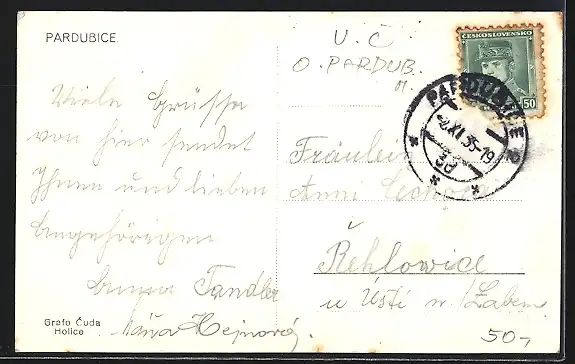 PARDUBICE
Viele Grüsse
von hier sendet
Ihnen und lieben
Angehörigen
Tandler
Hejnová.
Grafo Čuda
Holice
U. Č
O. PARDUB.
ČESKOSLOVENSKO
50
PARDUBICE 2
-2.XI.36-19
Fräulein
Anni
Řehlowice
u Ústí n./Labem
50,-